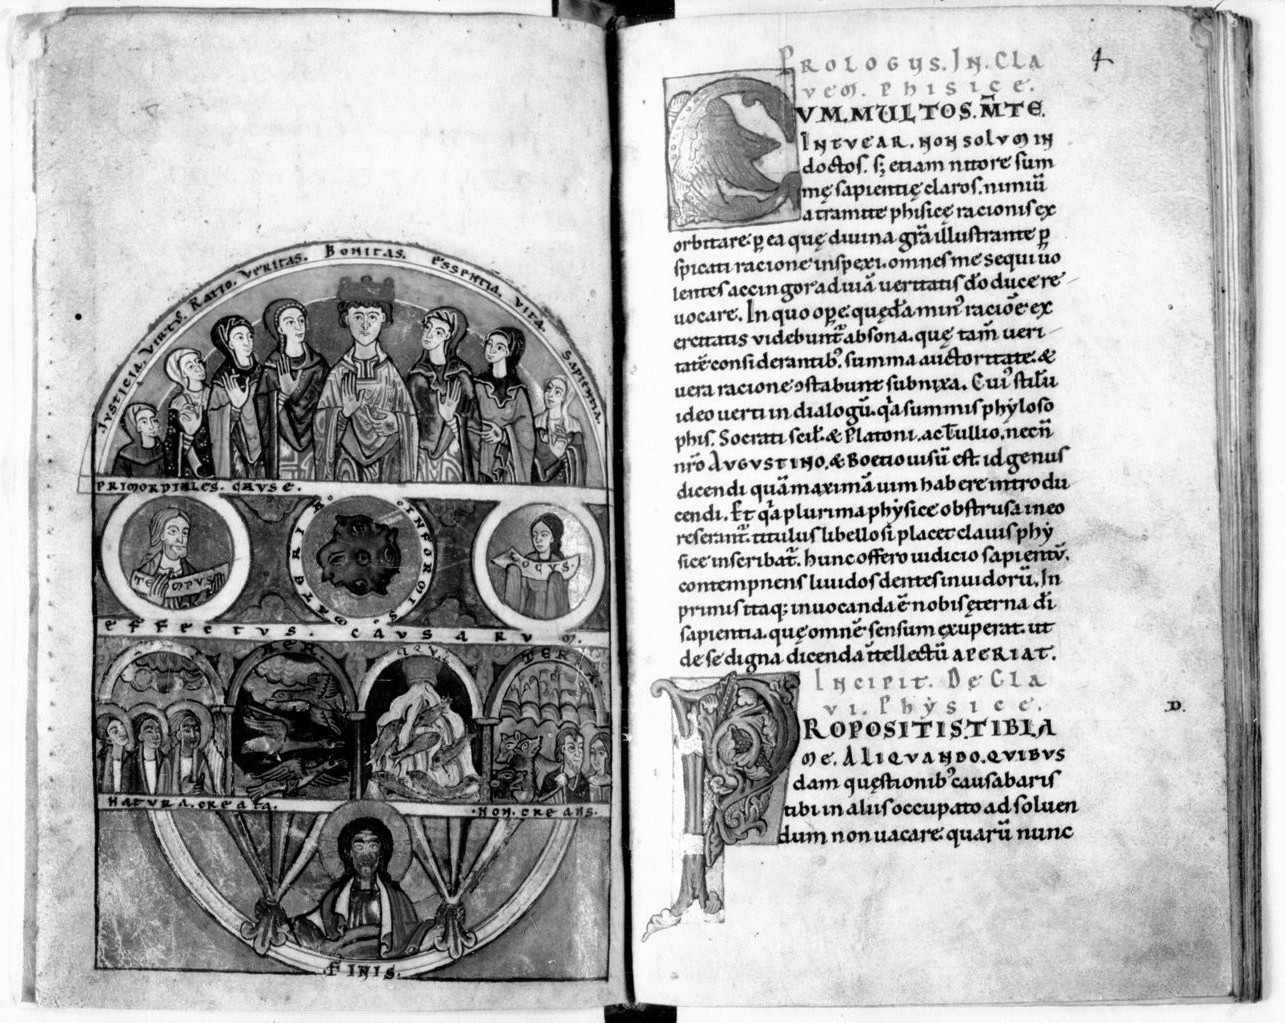 IUSTICIA. VIRTUS. RATIO. VERITAS. BONITAS. ESSENTIA. VITA. SAPIENTIA.
PRIMORDIALES. CAUSE.
TEMPUS
MATERIA. INFORMIS
LOCUS
EFFECTUS. CAUSARUM.
AER AQUA TERRA
NATURA. CREATA. NON. CREANS.
FINIS.
4
PROLOGUS. IN. CLA
VEM. PHISICE.
CUM. MULTOS. M̄TE.
INTUEAR. NON SOLUM IN
doctos. sꝫ etiam nitore sum
mę sapientię claros. nimiū
a tramite phisicę racionis ex
orbitare. ꝑ ea quę diuina gr̄a illustrante ꝑ
spicati racione inspexi. omnes me sequi uo
lentes accingor ad uiā ueritatis d̄o duce re
uocare. In quo oꝑe quędā min᾽ racioē ex
ercitatis videbunt̄ absona. quę tam̄ ueri
tatē considerantib᾽. summa auctoritate. &
uera racione ↄstabunt subnixa. Cui᾽ stilū
ideo uerti in dialogū. q̄a summis phyloso
phis. Socrati scił. & Platoni. ac Tullio. necn̄
nr̄o AUGUSTINO. & Boetio uisū est. id genus
dicendi quā maximā uim habere introdu
cendi. Et q̄a plurima physice obstrusa in eo
reserant̄. titulus libello si placet clauis phy
sice inscribat̄. hunc offero iudicio sapientū.
contempnens liuidos dentes inuidorū. In
primis itaq; inuocanda ē nobis ęterna d̄i
sapientia. quę omnē sensum exuperat. ut
de se digna dicenda ītellectū APERIAT.
INCIPIT. DE CLA
VI. PHYSICE.
D.
PROPOSITIS. TIBI. A
ME. ALIQUANDO. QUIBUS
dam quęstionib᾽ causabaris
tibi in aliis occupato ad soluen
dum non uacare. quarū nunc